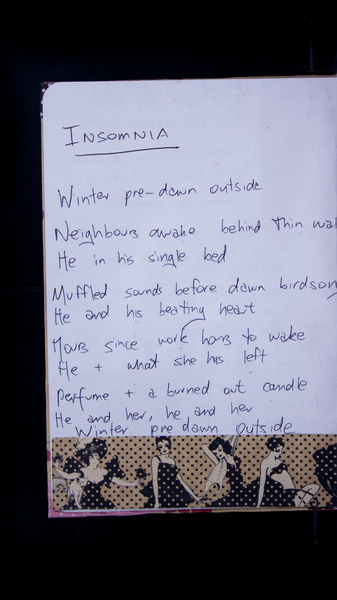 INSOMNIA
Winter pre-dawn outside
Neighbours awake behind thin wal
He in his single bed
Muffled sounds before dawn birdson
He and his beating heart
Hours since work hours to wake
He + what she has left
Perfume + a burned out candle
He and her, he and her
Winter pre dawn outside